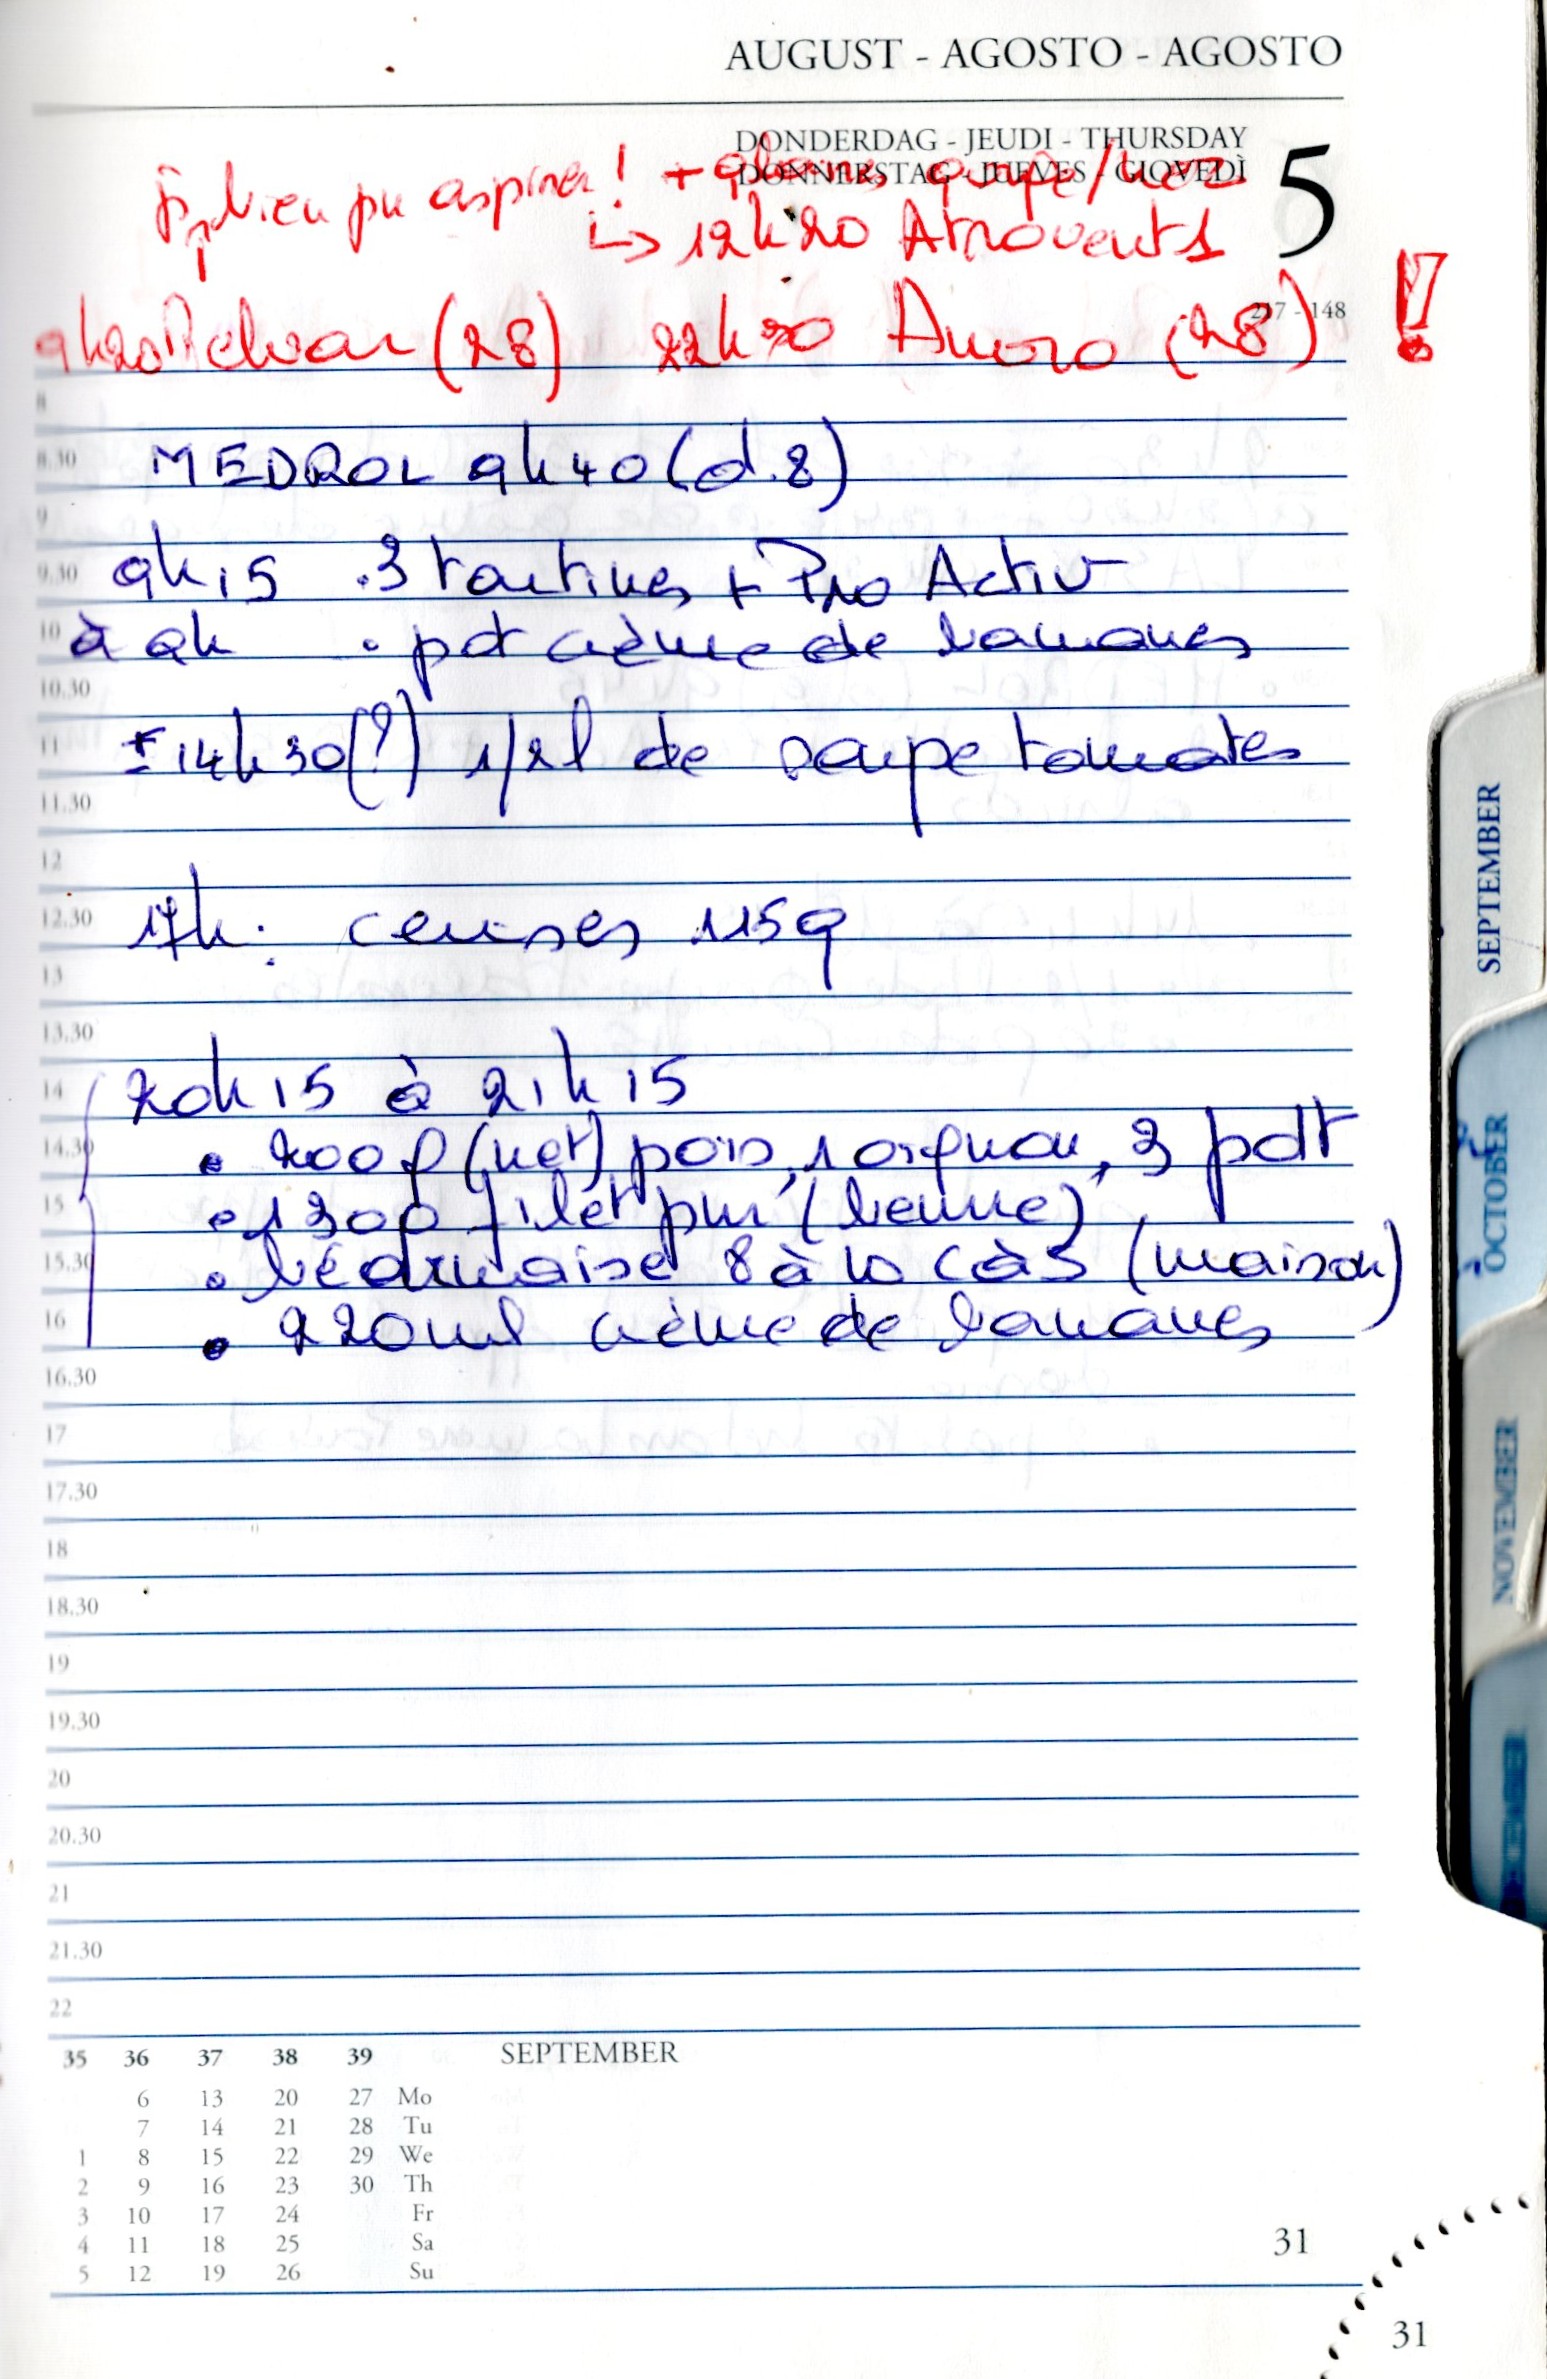 AUGUST - AGOSTO - AGOSTO
DONDERDAG - JEUDI - THURSDAY
DONNERSTAG - JUEVES - GIOVEDÌ
5
bien pu aspirer ! + glaires gorge/nez
↳ 12h20 Atrovent 1
217 - 148
9h20 Relvar (28) 22h20 Anoro (28) !
8
8.30 MEDROL 9h40 (d.8)
9
9.30 9h15 . 3 tartines + Pro Activ
10 à 9h • pdt crème de bananes
10.30
11 ± 14h30 (?) 1/2 l de soupe tomates
11.30
12
12.30 17h : cerises 115g
13
13.30
14 20h15 à 21h15
14.30 • 200g (net) pois, 1 oignon, 3 pdt
15 • 130g filet pur (benne)
15.30 • béarnaise 8 à 10 càs (maison)
16 • 220ml crème de bananes
16.30
17
17.30
18
18.30
19
19.30
20
20.30
21
21.30
22
35 36 37 38 39 SEPTEMBER
6 13 20 27 Mo
7 14 21 28 Tu
1 8 15 22 29 We
2 9 16 23 30 Th
3 10 17 24 Fr
4 11 18 25 Sa
5 12 19 26 Su
31
31
SEPTEMBER
OCTOBER
NOVEMBER